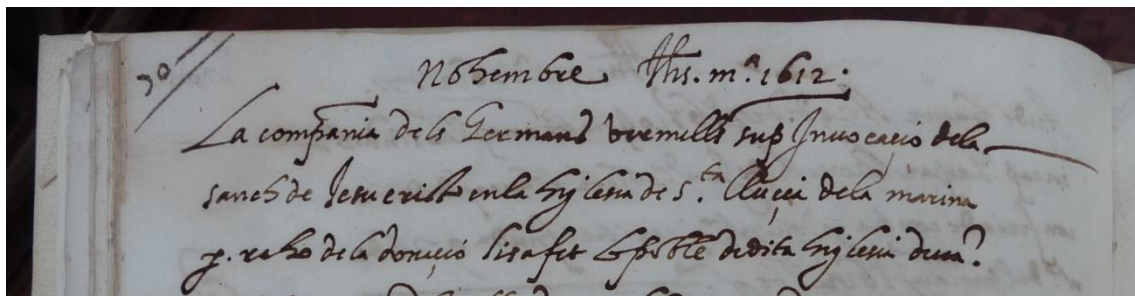 30
Nohembre Jhs. mª 1612.
La compañia dels Germans vremills sup Invocació dela
sanch de Jesucrist en la Iglesia de s.ta Lluçia dela marina
p. raho dela donació lis a fet lo poble de dita Iglesia